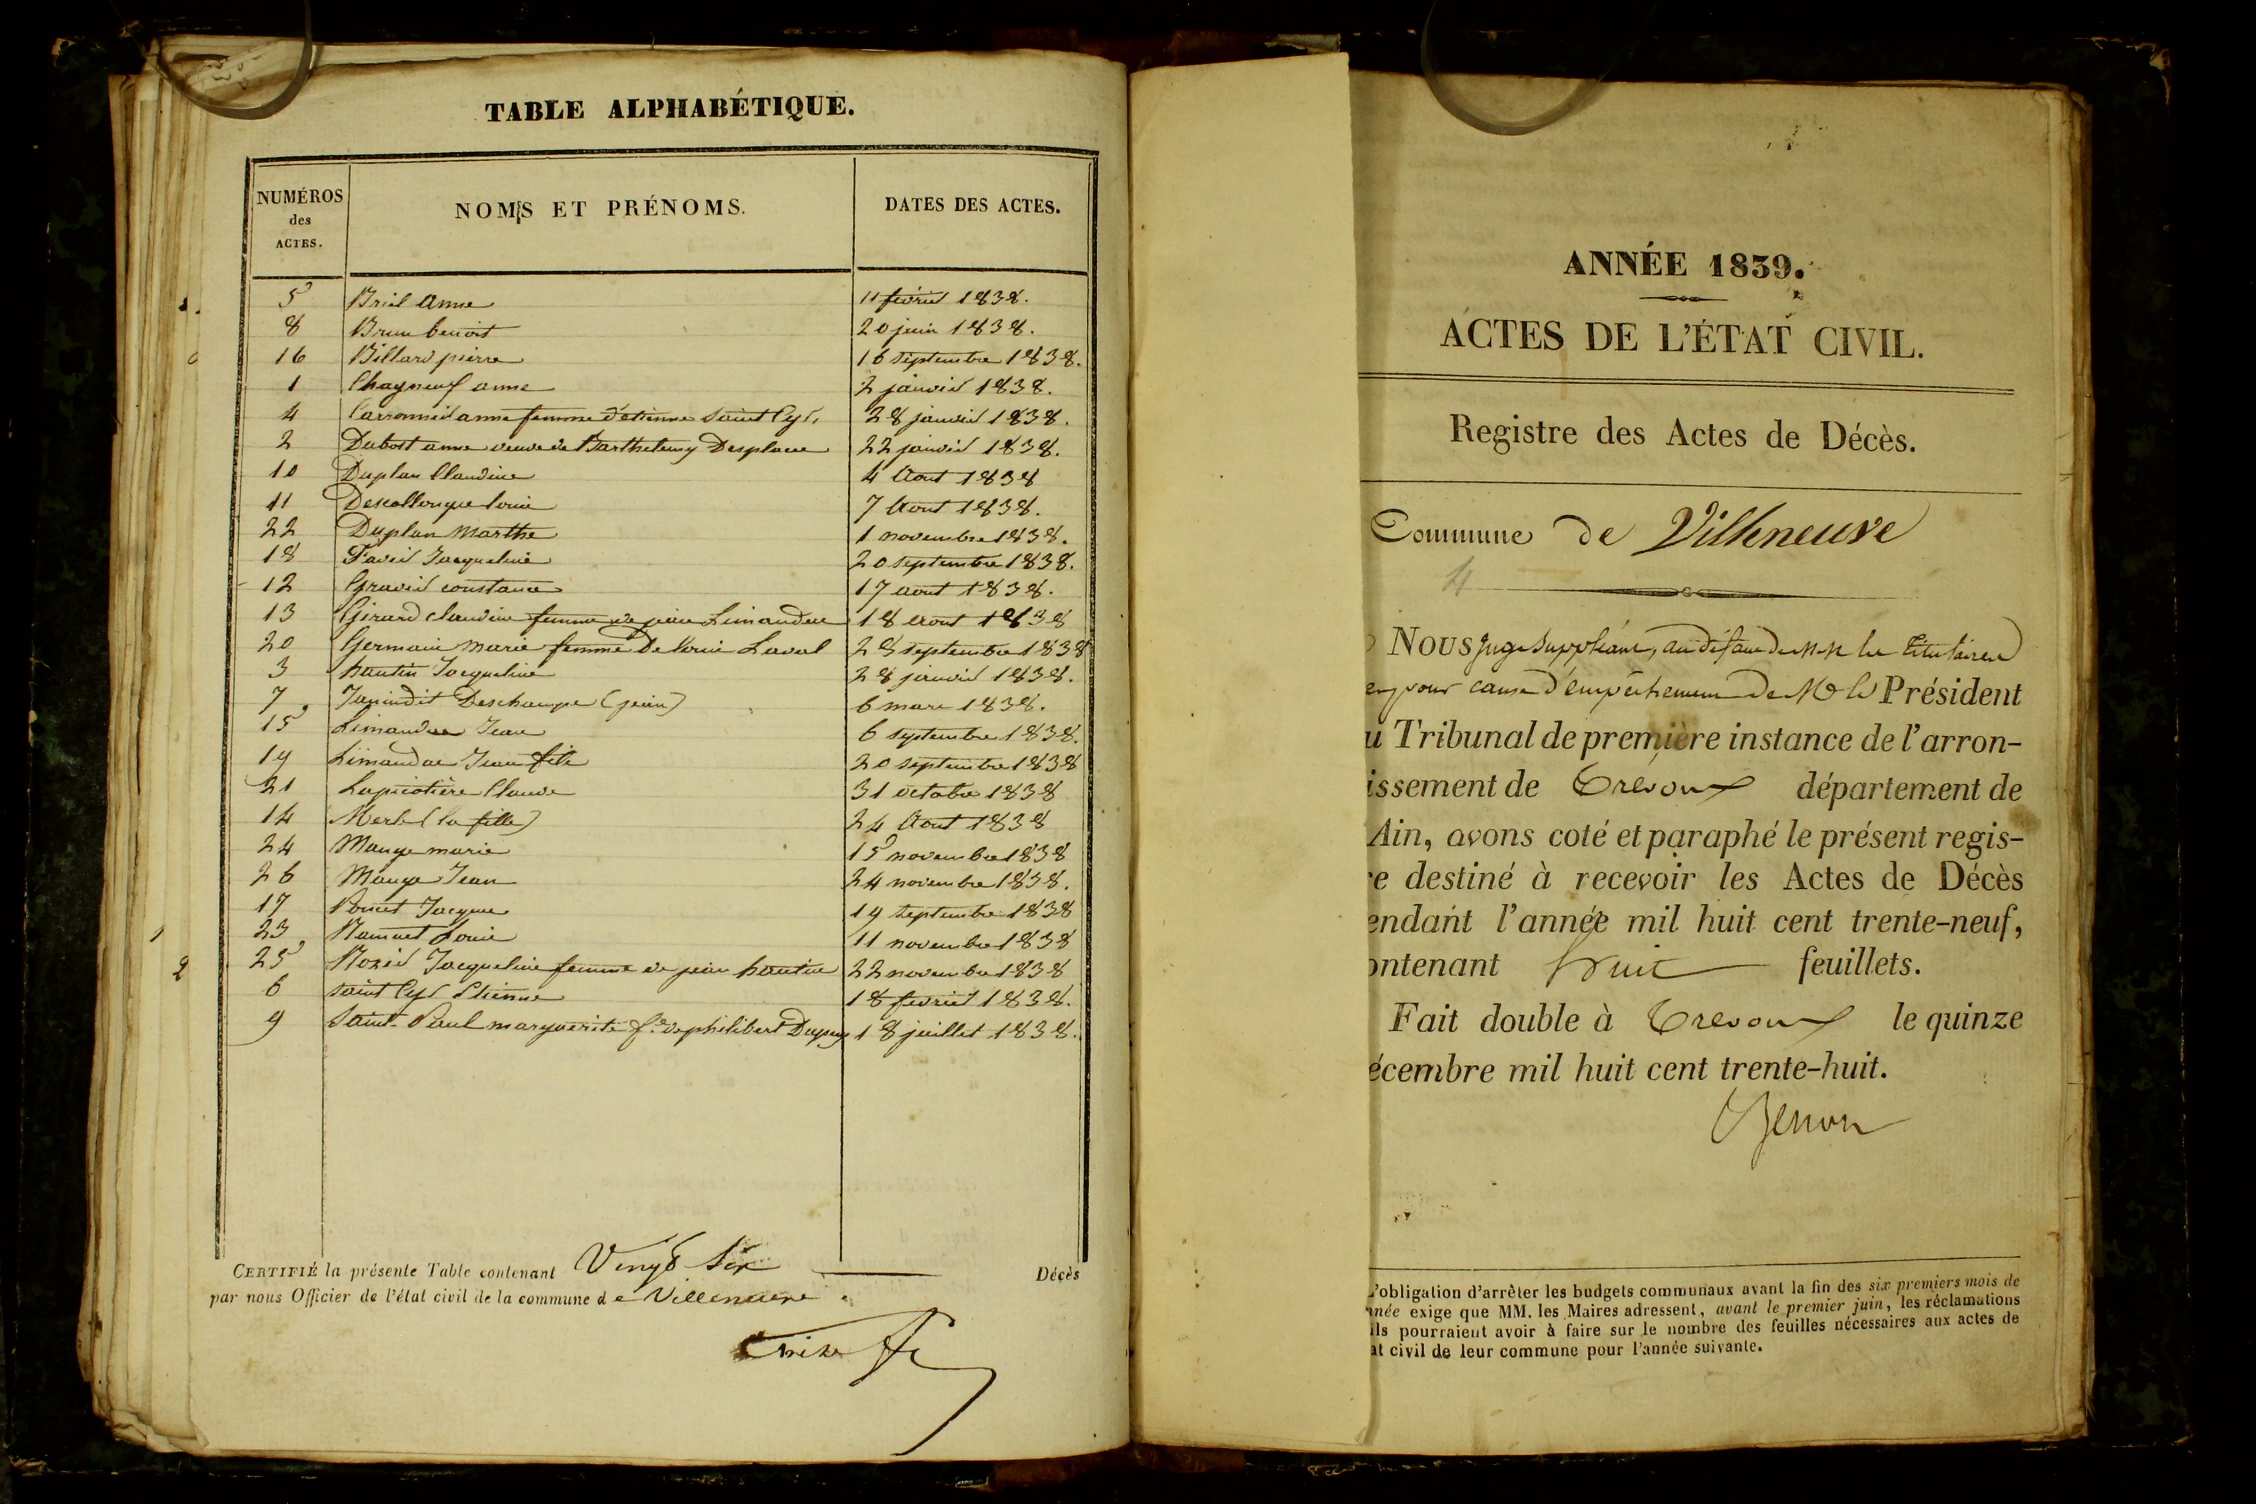 TABLE ALPHABÉTIQUE.
NUMÉROS des ACTES. NOMS ET PRÉNOMS. DATES DES ACTES.
5 Briel anne 11 février 1838.
8 Brun benoit 20 juin 1838.
16 Billard pierre 16 septembre 1838.
1 Chagneux anne 2 janvier 1838.
4 anne femme d'étienne Saint Cyr, 28 janvier 1838.
2 Dubost anne veuve de Barthelemy Desplace 22 janvier 1838.
10 Duplan Claudine 4 Aout 1838
11 Descollonge louis 7 Aout 1838.
22 Duplan Marthe 1 novembre 1838.
18 Favier Jacqueline 20 septembre 1838.
12 Gravier constance 17 aout 1838.
13 Girard claudine femme de jean Limandas 18 aout 1838
20 Germain Marie femme De louis Laval 28 septembre 1838
3 hautin Jacqueline 28 janvier 1838.
7 Deschamps (jean) 6 mars 1838.
15 Limandas Jean 6 septembre 1838.
19 Limandas Jean fils 20 septembre 1838
21 Lapicotière Claude 31 octobre 1838
14 Merle (la fille) 24 Aout 1838
24 Mauge marie 15 novembre 1838
26 Mauge Jean 24 novembre 1838.
17 Poncet Jacques 19 septembre 1838
23 louis 11 novembre 1838
25 Rozier Jacqueline femme de jean hautin 22 novembre 1838
6 saint Cyr Etienne 18 fevrier 1838.
9 Saint-Paul marguerite f.e de philibert Dupuy 18 juillet 1838.
CERTIFIÉ la présente Table contenant Vingt Six Décès
par nous Officier de l'état civil de la commune de Villeneuve.
1
2
ANNÉE 1839.
ACTES DE L'ÉTAT CIVIL.
Registre des Actes de Décès.
Commune de Villeneuve
4
NOUS juge suppléant, au défaut de MM les titulaires
pour cause d'empêchement de Mr le Président
u Tribunal de première instance de l'arron-
issement de Trevoux département de
Ain, avons coté et paraphé le présent regis-
re destiné à recevoir les Actes de Décès
endant l'année mil huit cent trente-neuf,
ontenant huit feuillets.
Fait double à Trevoux le quinze
écembre mil huit cent trente-huit.
L'obligation d'arrêter les budgets communaux avant la fin des six premiers mois de
nnée exige que MM. les Maires adressent, avant le premier juin, les réclamations
ils pourraient avoir à faire sur le nombre des feuilles nécessaires aux actes de
at civil de leur commune pour l'année suivante.